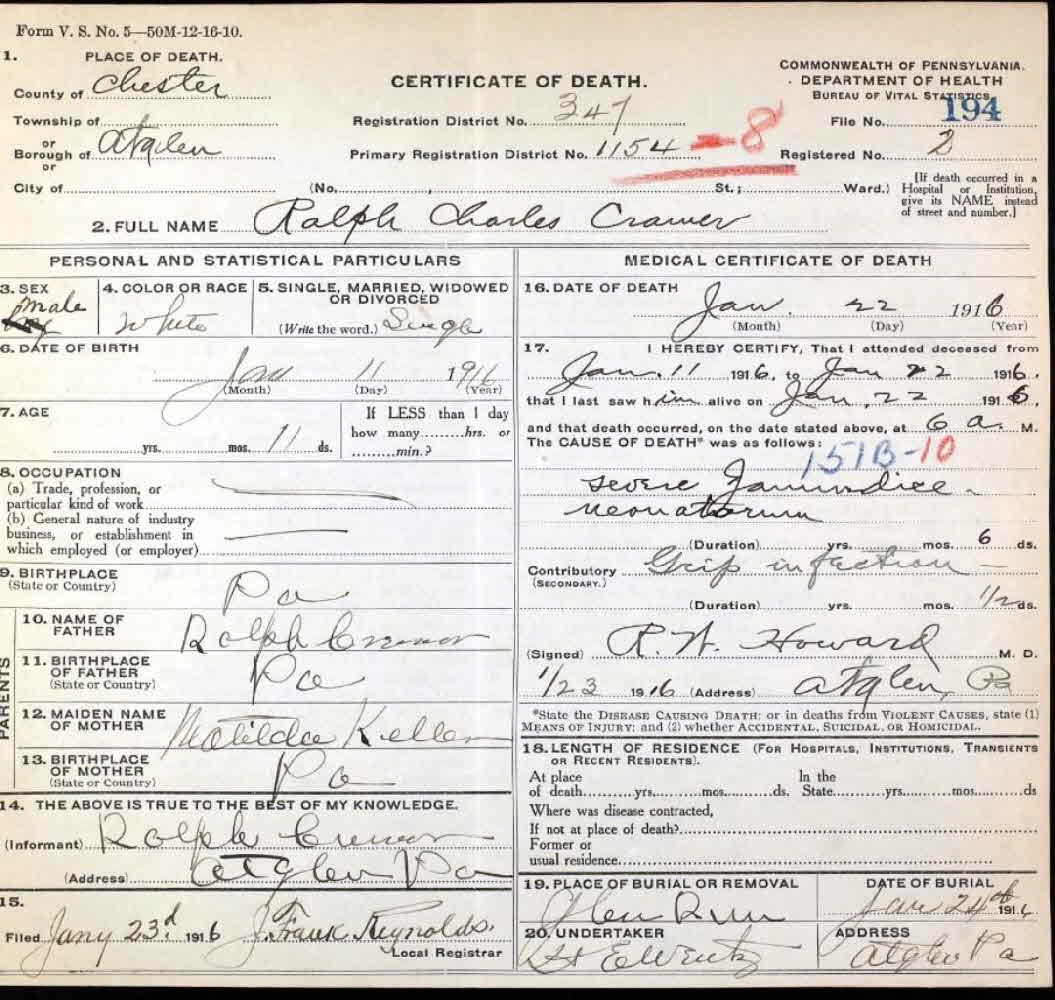 Form V. S. No. 5—50M-12-16-10.
1. PLACE OF DEATH.
County of Chester
Township of
or
Borough of Atglen
or
City of
CERTIFICATE OF DEATH.
Registration District No. 347
Primary Registration District No. 1154 - 8
(No. , St.; Ward.)
COMMONWEALTH OF PENNSYLVANIA.
DEPARTMENT OF HEALTH
BUREAU OF VITAL STATISTICS
File No. 194
Registered No. 2
[If death occurred in a
Hospital or Institution,
give its NAME instead
of street and number.]
2. FULL NAME Ralph Charles Cramer
PERSONAL AND STATISTICAL PARTICULARS
3. SEX
male
4. COLOR OR RACE
White
5. SINGLE, MARRIED, WIDOWED
OR DIVORCED
(Write the word.) Single
6. DATE OF BIRTH
Jan 11 1916
(Month) (Day) (Year)
7. AGE
yrs. mos. 11 ds.
If LESS than 1 day
how many hrs. or
min.?
8. OCCUPATION
(a) Trade, profession, or
particular kind of work
(b) General nature of industry
business, or establishment in
which employed (or employer)
9. BIRTHPLACE
(State or Country)
Pa
PARENTS
10. NAME OF
FATHER
Ralph Cramer
11. BIRTHPLACE
OF FATHER
(State or Country)
Pa
12. MAIDEN NAME
OF MOTHER
Matilda Keller
13. BIRTHPLACE
OF MOTHER
(State or Country)
Pa
14. THE ABOVE IS TRUE TO THE BEST OF MY KNOWLEDGE.
(Informant) Ralph Cramer
(Address) Atglen Pa
15.
Filed Jany 23d 1916 J. Frank Reynolds.
Local Registrar
MEDICAL CERTIFICATE OF DEATH
16. DATE OF DEATH
Jan. 22 1916
(Month) (Day) (Year)
17. I HEREBY CERTIFY, That I attended deceased from
Jan. 11 1916, to Jan 22 1916.
that I last saw him alive on Jan, 22 1916,
and that death occurred, on the date stated above, at 6 a. M.
The CAUSE OF DEATH* was as follows:
151B-10
severe Jaundice
neonatorum
(Duration) yrs. mos. 6 ds.
Contributory Grip infection
(SECONDARY.)
(Duration) yrs. mos. 1/2 ds.
(Signed) R. W. Howard M. D.
1/23 1916 (Address) Atglen, Pa
*State the DISEASE CAUSING DEATH; or in deaths from VIOLENT CAUSES, state (1)
MEANS OF INJURY; and (2) whether ACCIDENTAL, SUICIDAL, OR HOMICIDAL.
18. LENGTH OF RESIDENCE (FOR HOSPITALS, INSTITUTIONS, TRANSIENTS
OR RECENT RESIDENTS).
At place
of death yrs. mos. ds.
In the
State yrs. mos. ds
Where was disease contracted,
If not at place of death?
Former or
usual residence
19. PLACE OF BURIAL OR REMOVAL
Glen Run
DATE OF BURIAL
Jan 24th 1916
20. UNDERTAKER
ADDRESS
Atglen Pa